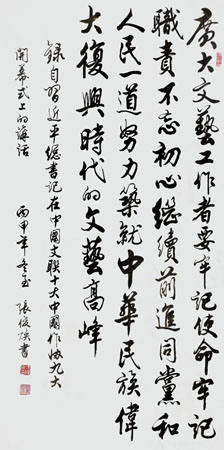 廣大文藝工作者要牢記使命牢記
職責不忘初心繼續前進同黨和
人民一道努力築就中華民族偉
大復興時代的文藝高峰
錄自習近平總書記在中國文聯十大中國作協九大
開幕式上的講話 丙申年冬 張俊書